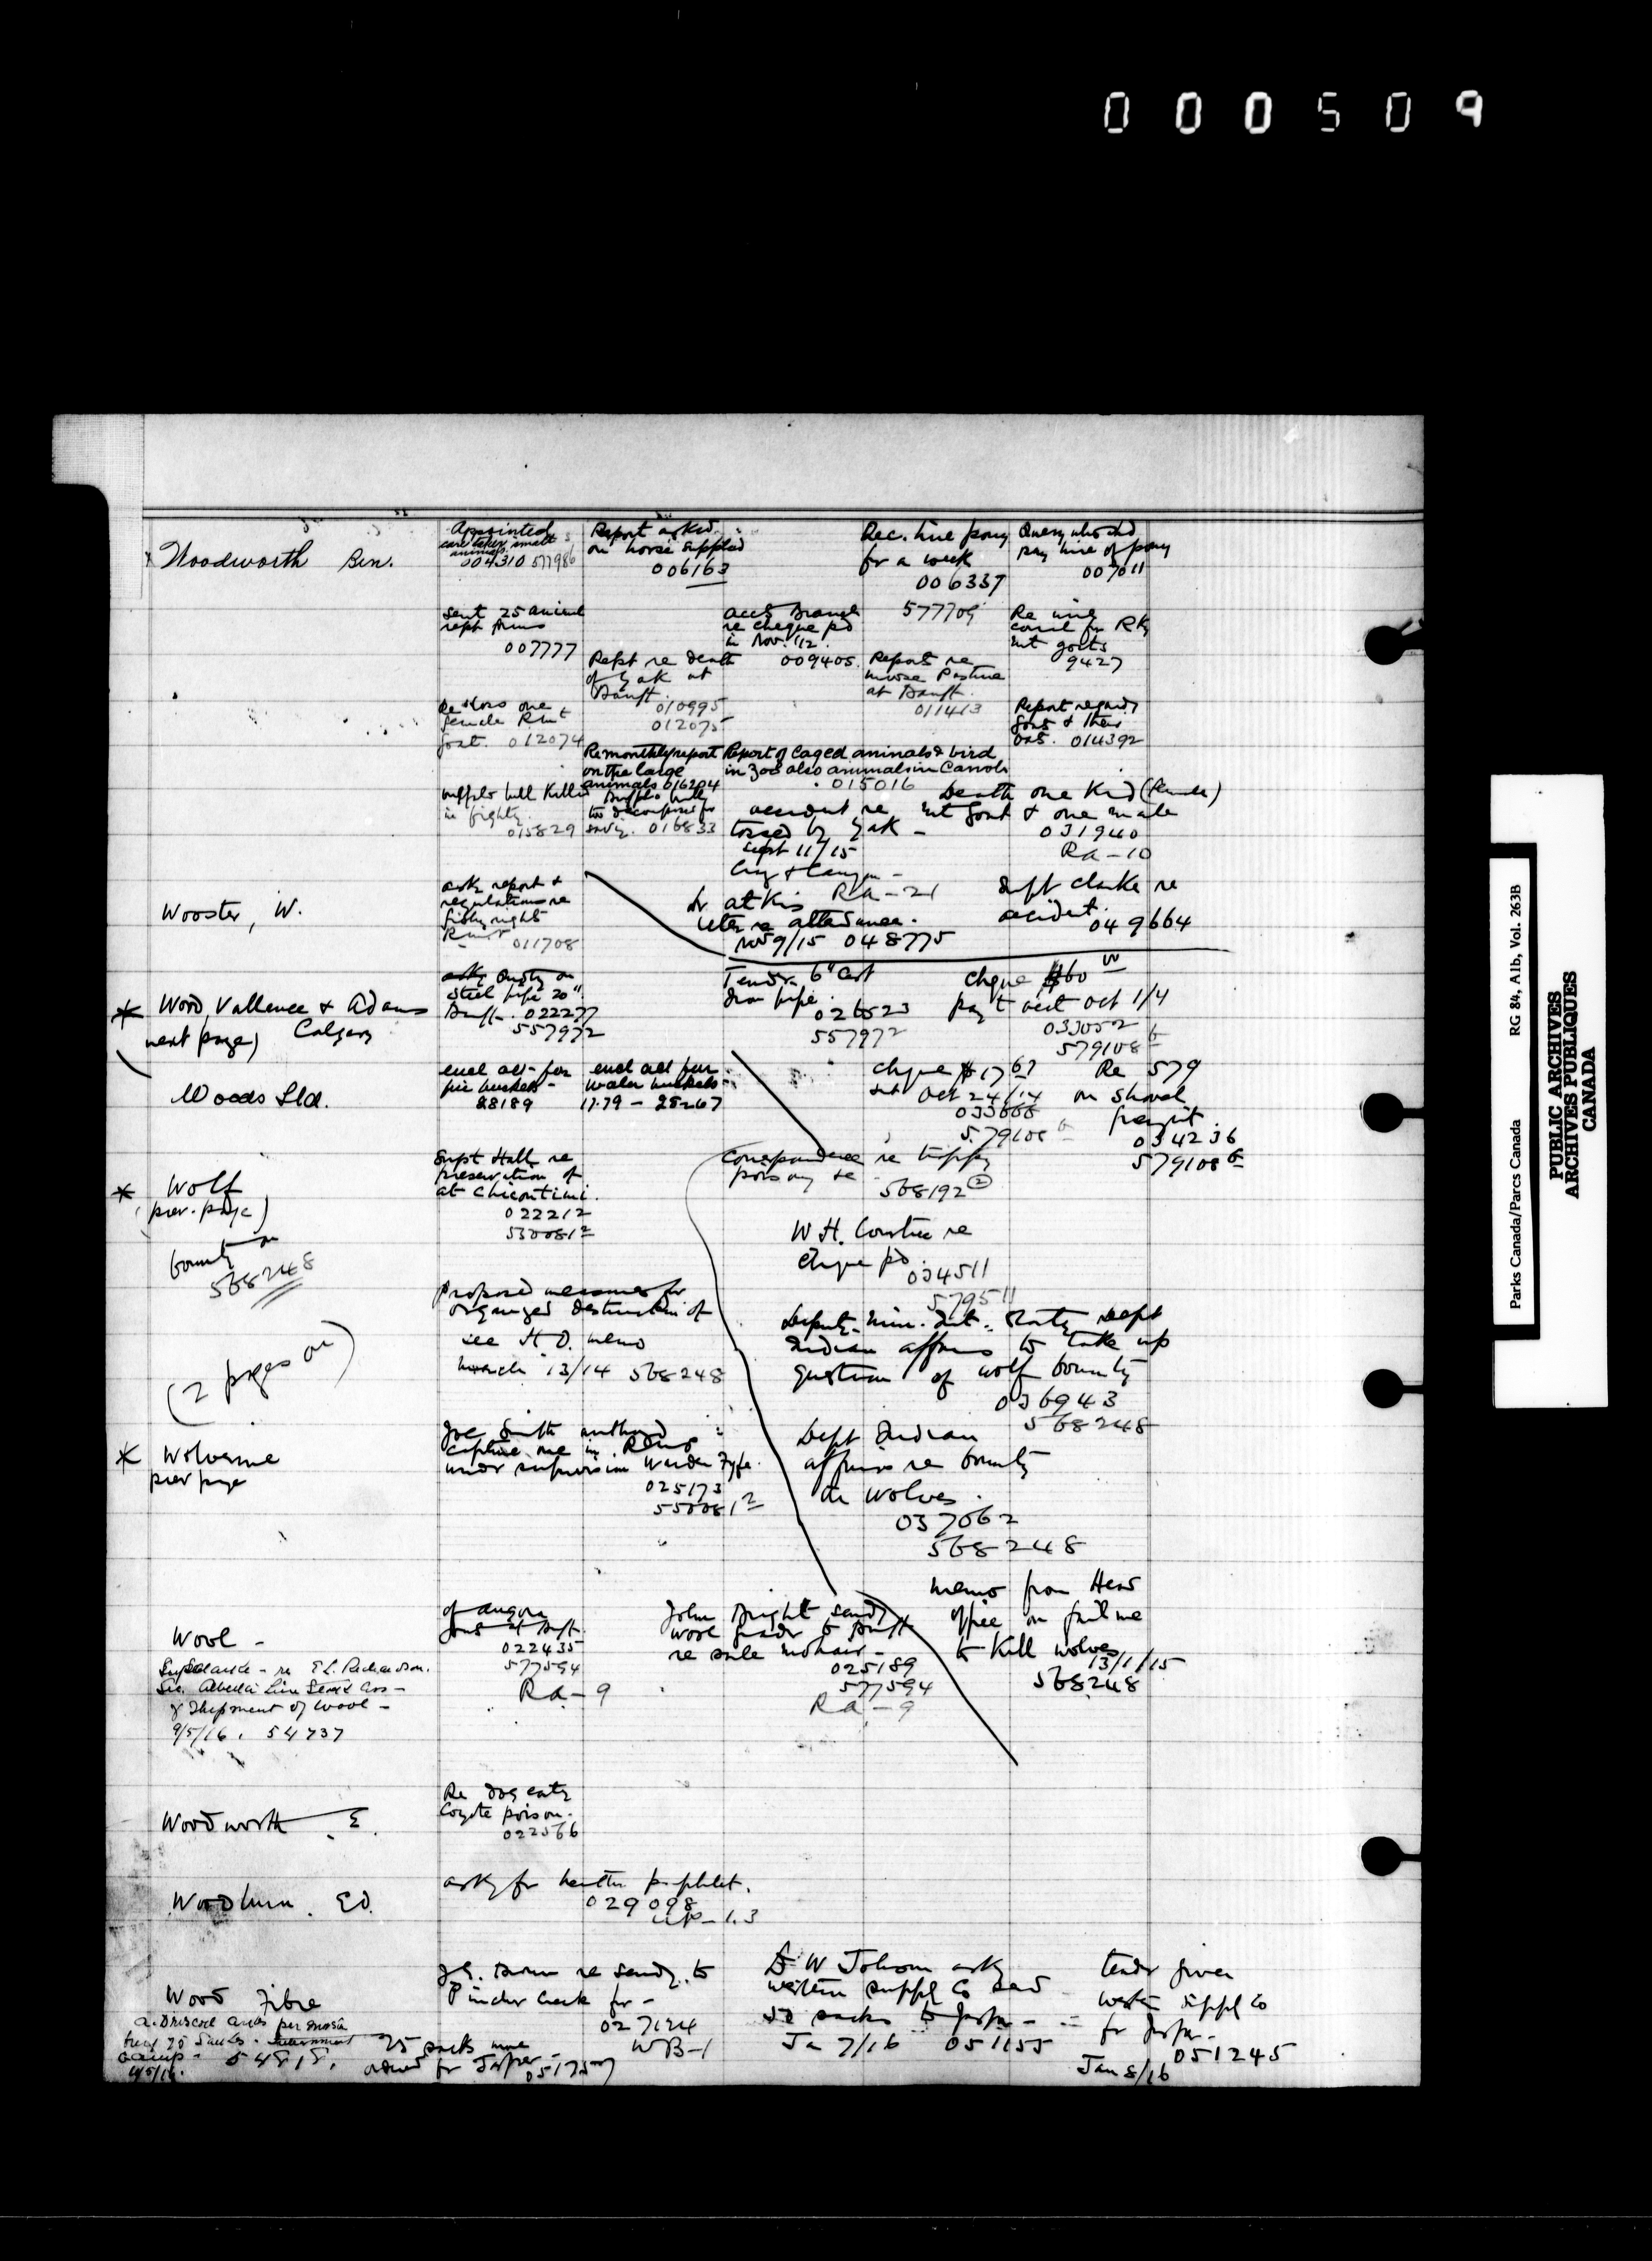 000509
Woodworth Ben.
Appointed
caretaker small
animals.
004310 577986
Report asked
on horse supplied
006163
Rec. hire pony
for a week
006337
577709
Query who shd
pay hire of pony
007011
sent 25 animal
rept forms
007777
Accts Branch
re cheque pd
in Nov. '12.
009405
Re
corral for Rky
mt goats
9427
Rept re death
of Yak at
Banff.
010995
012075
Report re
moose Pasture
at Banff.
011413
Re loss one
female R mt
goat. 012074
Report regardg
goats & their
014392
Re monthly report
on the large
animals 016204
Report of Caged animals & bird
in Zoo also animals in Corrals
015016
Buffalo bull killed
in fightg
015829
Buffalo bully
too decomposed for
016833
accident re
tossed by Yak -
Sept 11/15
Ra-21
Death one Kid (female)
mt goat & one male
031940
Ra-10
Wooster, W.
asks report &
regulations re
fishg rights
R mt
011708
Dr Atkin
letter re attendance.
Nov 9/15 048775
Supt Clarke re
accident.
049664
* Wood, Vallence & Adams
next page) Calgary
steel pipe 20"
Banff. 022277
557972
Tender 6" Cast
Iron pipe.
026523
557972
Cheque $60
pay't acct Oct 1/4
033052
579108
Woods Ltd.
encl acct for
fire buckets -
28189
encl acct for
water buckets
17.79 - 28267
cheque $17 67
Oct 24/14
033668
579108
Re 579
on shovel
freight
034236
579108
* Wolf
(prev. page)
bounty on
568248
(2 pages on)
Supt Hall re
preservation of
at Chicoutimi.
022212
530081 2
Correspondence re trappg
poisong &c
568192 2
W H. re
cheque pd.
034511
579511
Proposed measures for
organized destruction of
see H O. memo
March 13/14 568248
Deputy Min. Int. Dept
Indian affairs to take up
question of wolf bounty
036943
568248
* Wolverine
prev page
Joe Smith
capture one in R
under supervision Warden Fyfe.
025173
530081 2
Dept Indian
affairs re bounty
on wolves.
037062
568248
memo from Head
office on
to kill wolves
13/1/15
568248
Wool -
Supt Clarke - re E L. Richardson.
Sec. Alberta Live Stock Ass -
& Shipment of Wool -
9/5/16. 54737
of angora
goats at Banff
022435
577594
Ra-9
John Bright sendg
wool grader to Banff
re sale mohair -
025189
577594
Ra-9
Woodworth E.
Re dog eatg
Coyote poison.
022566
Woodburn. Ed.
askg for pamphlet.
029098
1.3
Wood Fibre
A. Driscoll asks
buy 75 Sacks -
camp -
J G. re sendg. to
Pincher Creek for -
027124
WB-1
75 sacks more
ordered for Jasper -
D W Johnson askg
western supply Co send
50 sacks to Jasper -
Ja 7/16 051155
tender given
western supply Co
for Jasper -
051245
Jan 8/16
PUBLIC ARCHIVES
ARCHIVES PUBLIQUES
CANADA
Parks Canada/Parcs Canada RG 84, A1b, Vol. 263B